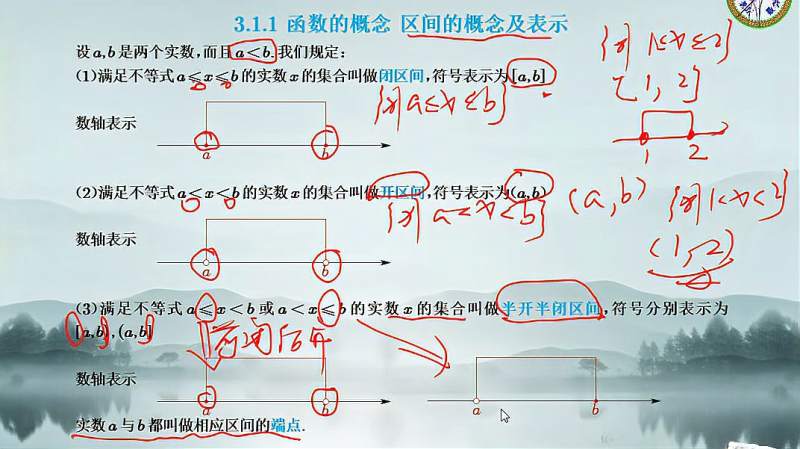 3.1.1 函数的概念 区间的概念及表示
设a,b是两个实数,而且a<b.我们规定:
{x|1≤x≤2}
(1)满足不等式a≤x≤b的实数x的集合叫做闭区间,符号表示为[a,b]
[1,2]
{x|a≤x≤b}
数轴表示
1 2
a b
(2)满足不等式a<x<b的实数x的集合叫做开区间,符号表示为(a,b)
{x|a<x<b} (a,b) {x|1<x<2}
数轴表示
(1,2)
a b
(3)满足不等式a≤x<b或a<x≤b的实数x的集合叫做半开半闭区间,符号分别表示为
[a,b),(a,b]
数轴表示
a b a b
实数a与b都叫做相应区间的端点.